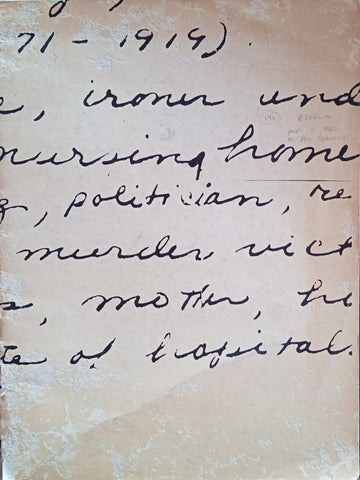 71 - 1919).
, ironer und
nursing home
, politician, re
murder vict
s, mother, he
te of hospital.